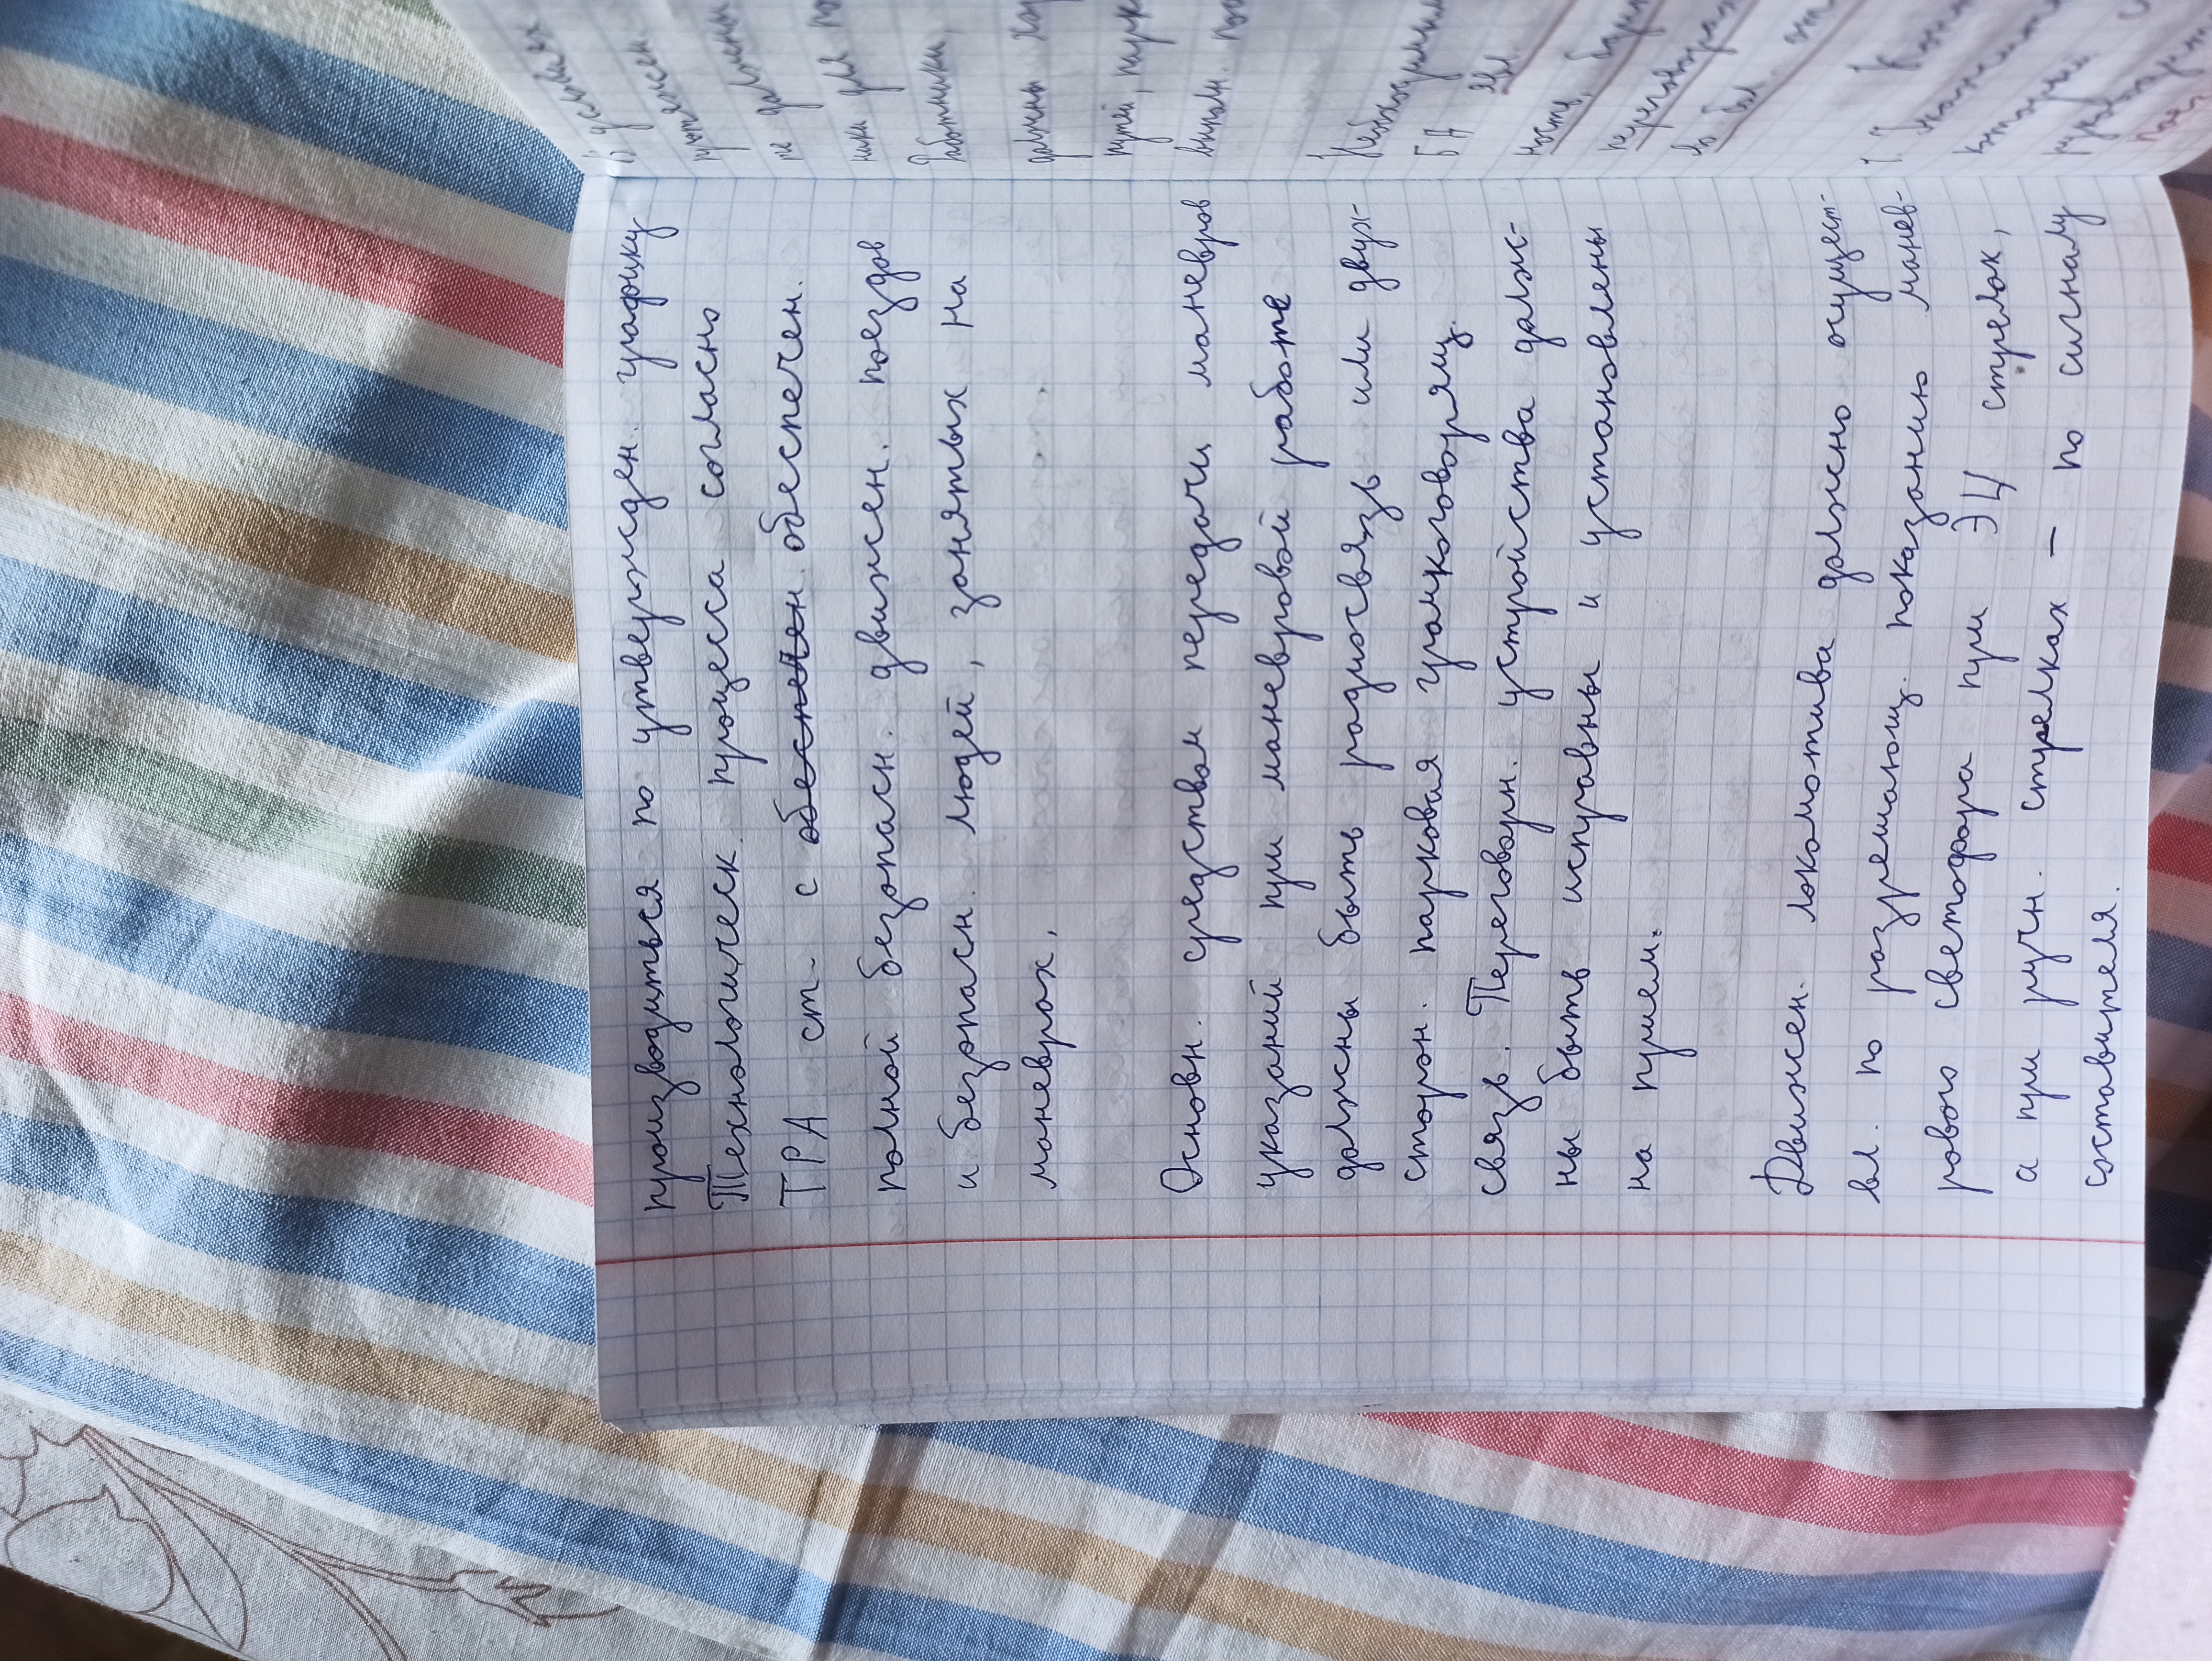 производиться по утвержден. графику
Технологическ. процесса согласно
ТРА ст. с обеспечен. обеспечен.
полной безопасн. движен. поездов
и безопасн. людей, занятых на
маневрах.
Основн. средством передачи маневров
указаний при маневровой работе
должны быть радиосвязь или двух-
сторон. парковая громкоговорящ.
связь. Переговорн. устройства долж-
ны быть исправны и установлены
на прием.
Движен. локомотива должно осущест-
вл. по разрешающ. показанию манев-
рового светофора при ЭЦ стрелок,
а при ручн. стрелках — по сигналу
составителя.
в) усилия
не должны
ники для
Работники,
должны
путей,
выполн.
Необходимы
БА
ность,
1.